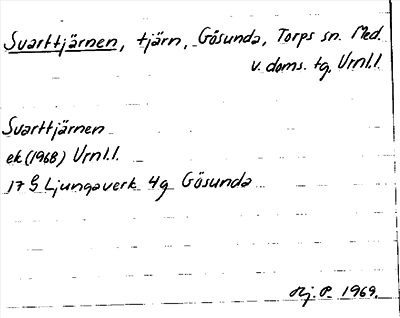 Svarttjärnen, tjärn, Gösunda, Torps sn. Med.
v. doms. tg. Vrnl.l.
Svarttjärnen
ek (1968) Vrnl.l.
17 G Ljungaverk 4g Gösunda
Hj. P. 1969.